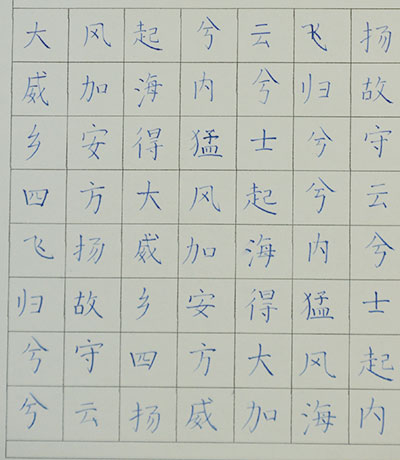 大风起兮云飞扬
威加海内兮归故
乡安得猛士兮守
四方大风起兮云
飞扬威加海内兮
归故乡安得猛士
兮守四方大风起
兮云扬威加海内